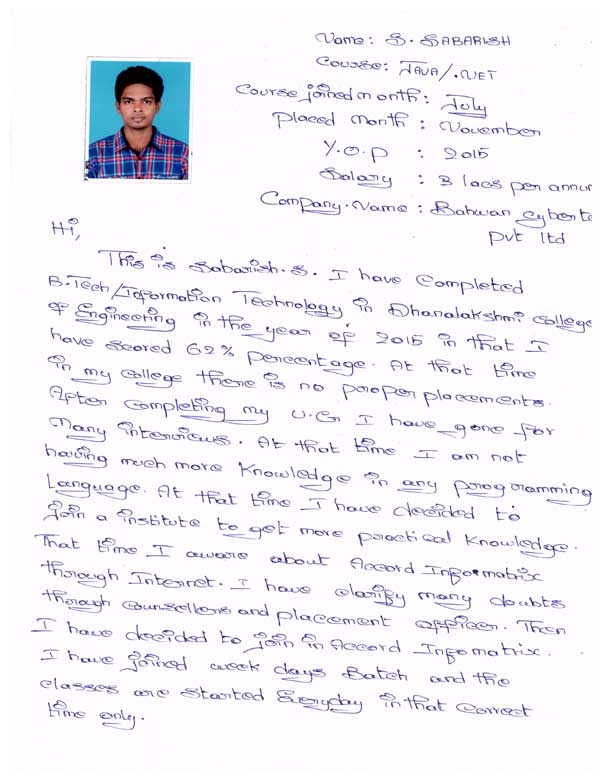 Name: S. SABARISH
Course: JAVA/.NET
Course joined month: July
Placed Month : November
Y.O.P : 2015
Salary : 3 lacs per annum
Company.Name : Bahwan cyberte
Pvt ltd
Hi,
This is Sabarish.S. I have completed
B.Tech/Information Technology in Dhanalakshmi college
of Engineering in the year of 2015 in that I
have scored 62% percentage. At that time
in my college there is no proper placements.
After completing my U.G I have gone for
Many interviews. At that time I am not
having much more knowledge in any programming
Language. At that time I have decided to
join a institute to get more practical knowledge.
That time I aware about Accord Informatrix
through Internet. I have clarify many doubts
through counsellers and placement officer. Then
I have decided to join in Accord Infomatrix.
I have joined week days Batch and the
classes are started Everyday in that correct
time only.